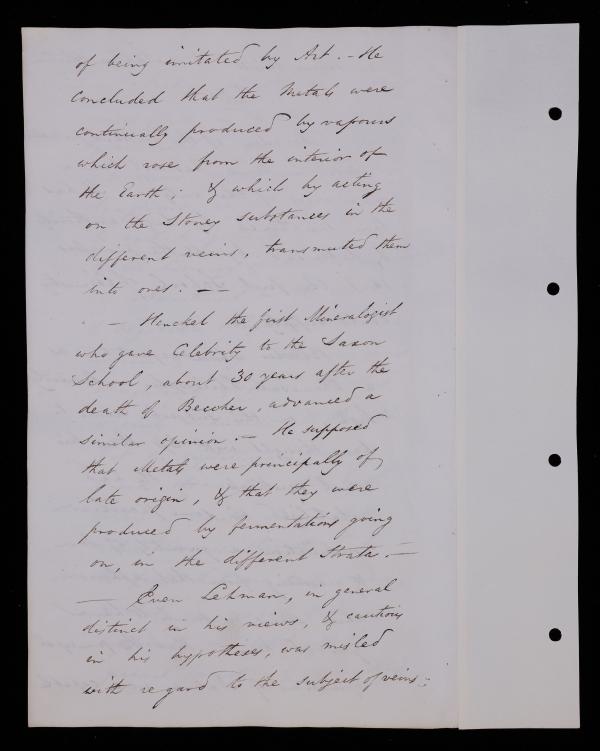 of being imitated by Art. - He
concluded that the Metals were
continually produced by vapours
which rose from the interior of
the Earth; & which by acting
on the Stoney substances in the
different veins, transmuted them
into ores. - -
- Henckel the first Mineralogist
who gave Celebrity to the Saxon
School, about 30 years after the
death of Beccher, advanced a
similar opinion. - He supposed
that Metals were principally of
late origin, & that they were
produced by fermentations going
on, in the different Strata. -
- Even Lehman, in general
distinct in his views, & cautious
in his hypotheses, was misled
with regard to the subject of veins: